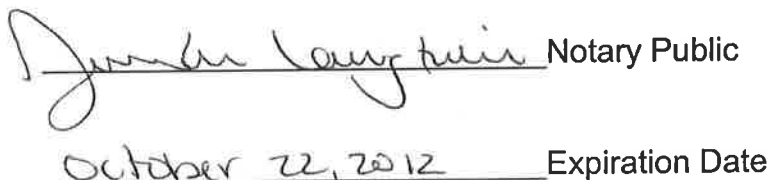 Notary Public
October 22, 2012 Expiration Date